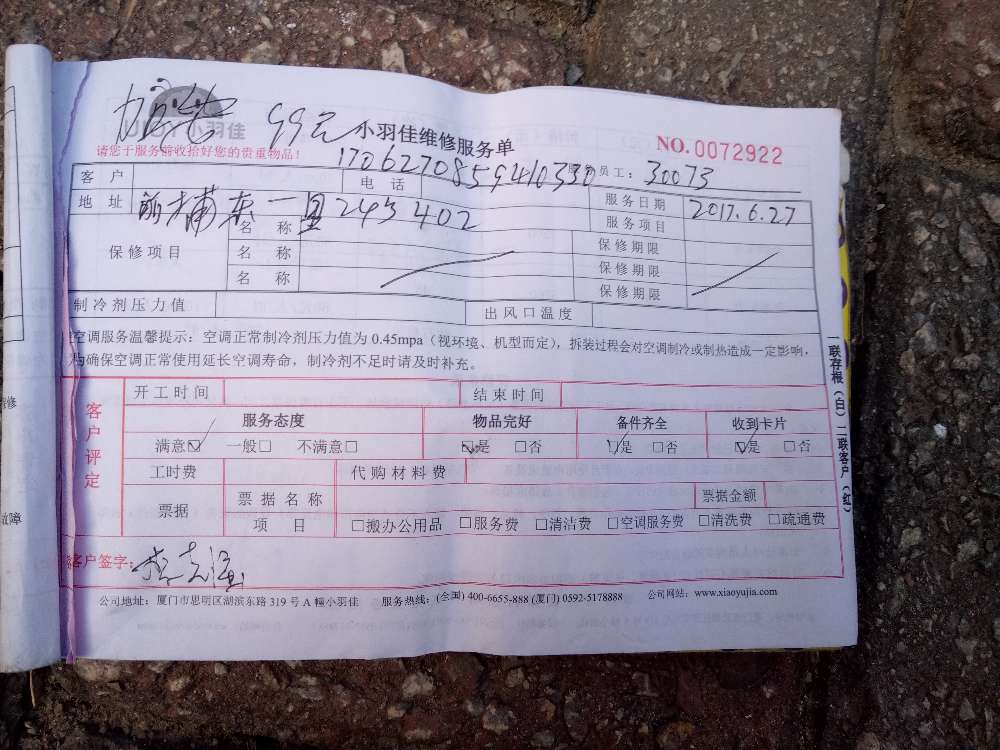 99元 小羽佳维修服务单
小羽佳
NO.0072922
请您于服务前收拾好您的贵重物品!
1706270859410330 员工: 30073
客户 电话 服务日期 2017.6.27
地址 前埔东一里245 402 服务项目
保修项目 名称 保修期限
名称 保修期限
名称 保修期限
制冷剂压力值 出风口温度
空调服务温馨提示:空调正常制冷剂压力值为 0.45mpa(视环境、机型而定),拆装过程会对空调制冷或制热造成一定影响,
为确保空调正常使用延长空调寿命,制冷剂不足时请及时补充。
客户评定
开工时间 结束时间
服务态度 物品完好 备件齐全 收到卡片
满意☑ 一般□ 不满意□ ☑是 □否 ☑是 □否 ☑是 □否
工时费 代购材料费
票据 票据名称 票据金额
项目 □搬办公用品 □服务费 □清洁费 □空调服务费 □清洗费 □疏通费
客户签字:
公司地址:厦门市思明区湖滨东路 319 号 A 幢小羽佳 服务热线:(全国) 400-6655-888 (厦门) 0592-5178888 公司网站:www.xiaoyujia.com
一联存根(白)二联客户(红)
修
故障